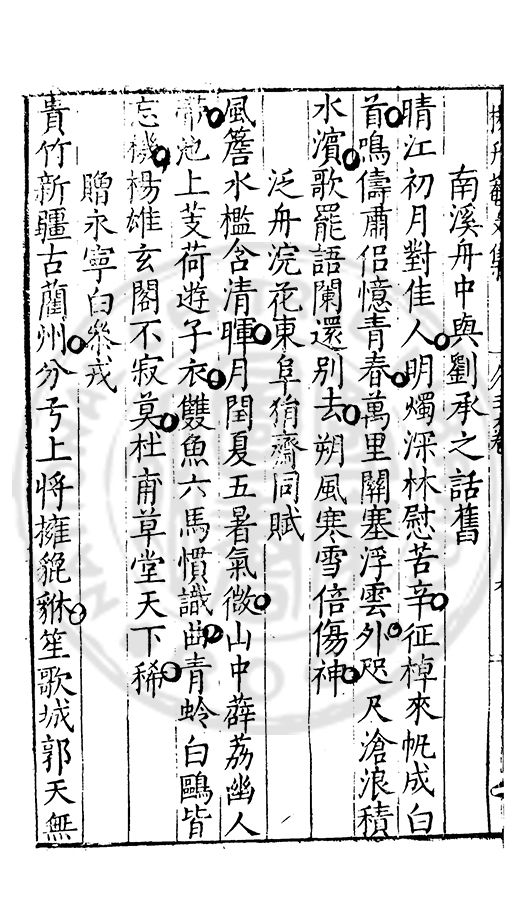 南溪舟中與劉承之話舊
晴江初月對佳人明燭深林慰苦辛征棹來帆成白
首鳴儔肅侶憶青春萬里關塞浮雲外咫尺滄浪積
水濱歌罷語闌還別去朔風寒雪倍傷神
泛舟浣花東阜狷齋同賦
風簷水檻含清暉月閏夏五暑氣微山中薜荔幽人
帶池上芰荷遊子衣雙魚六馬慣識曲青蛉白鷗皆
忘機楊雄玄閣不寂莫杜甫草堂天下稀
贈永寧白參戎
貴竹新疆古藺州分弓上將擁貔貅笙歌城郭天無